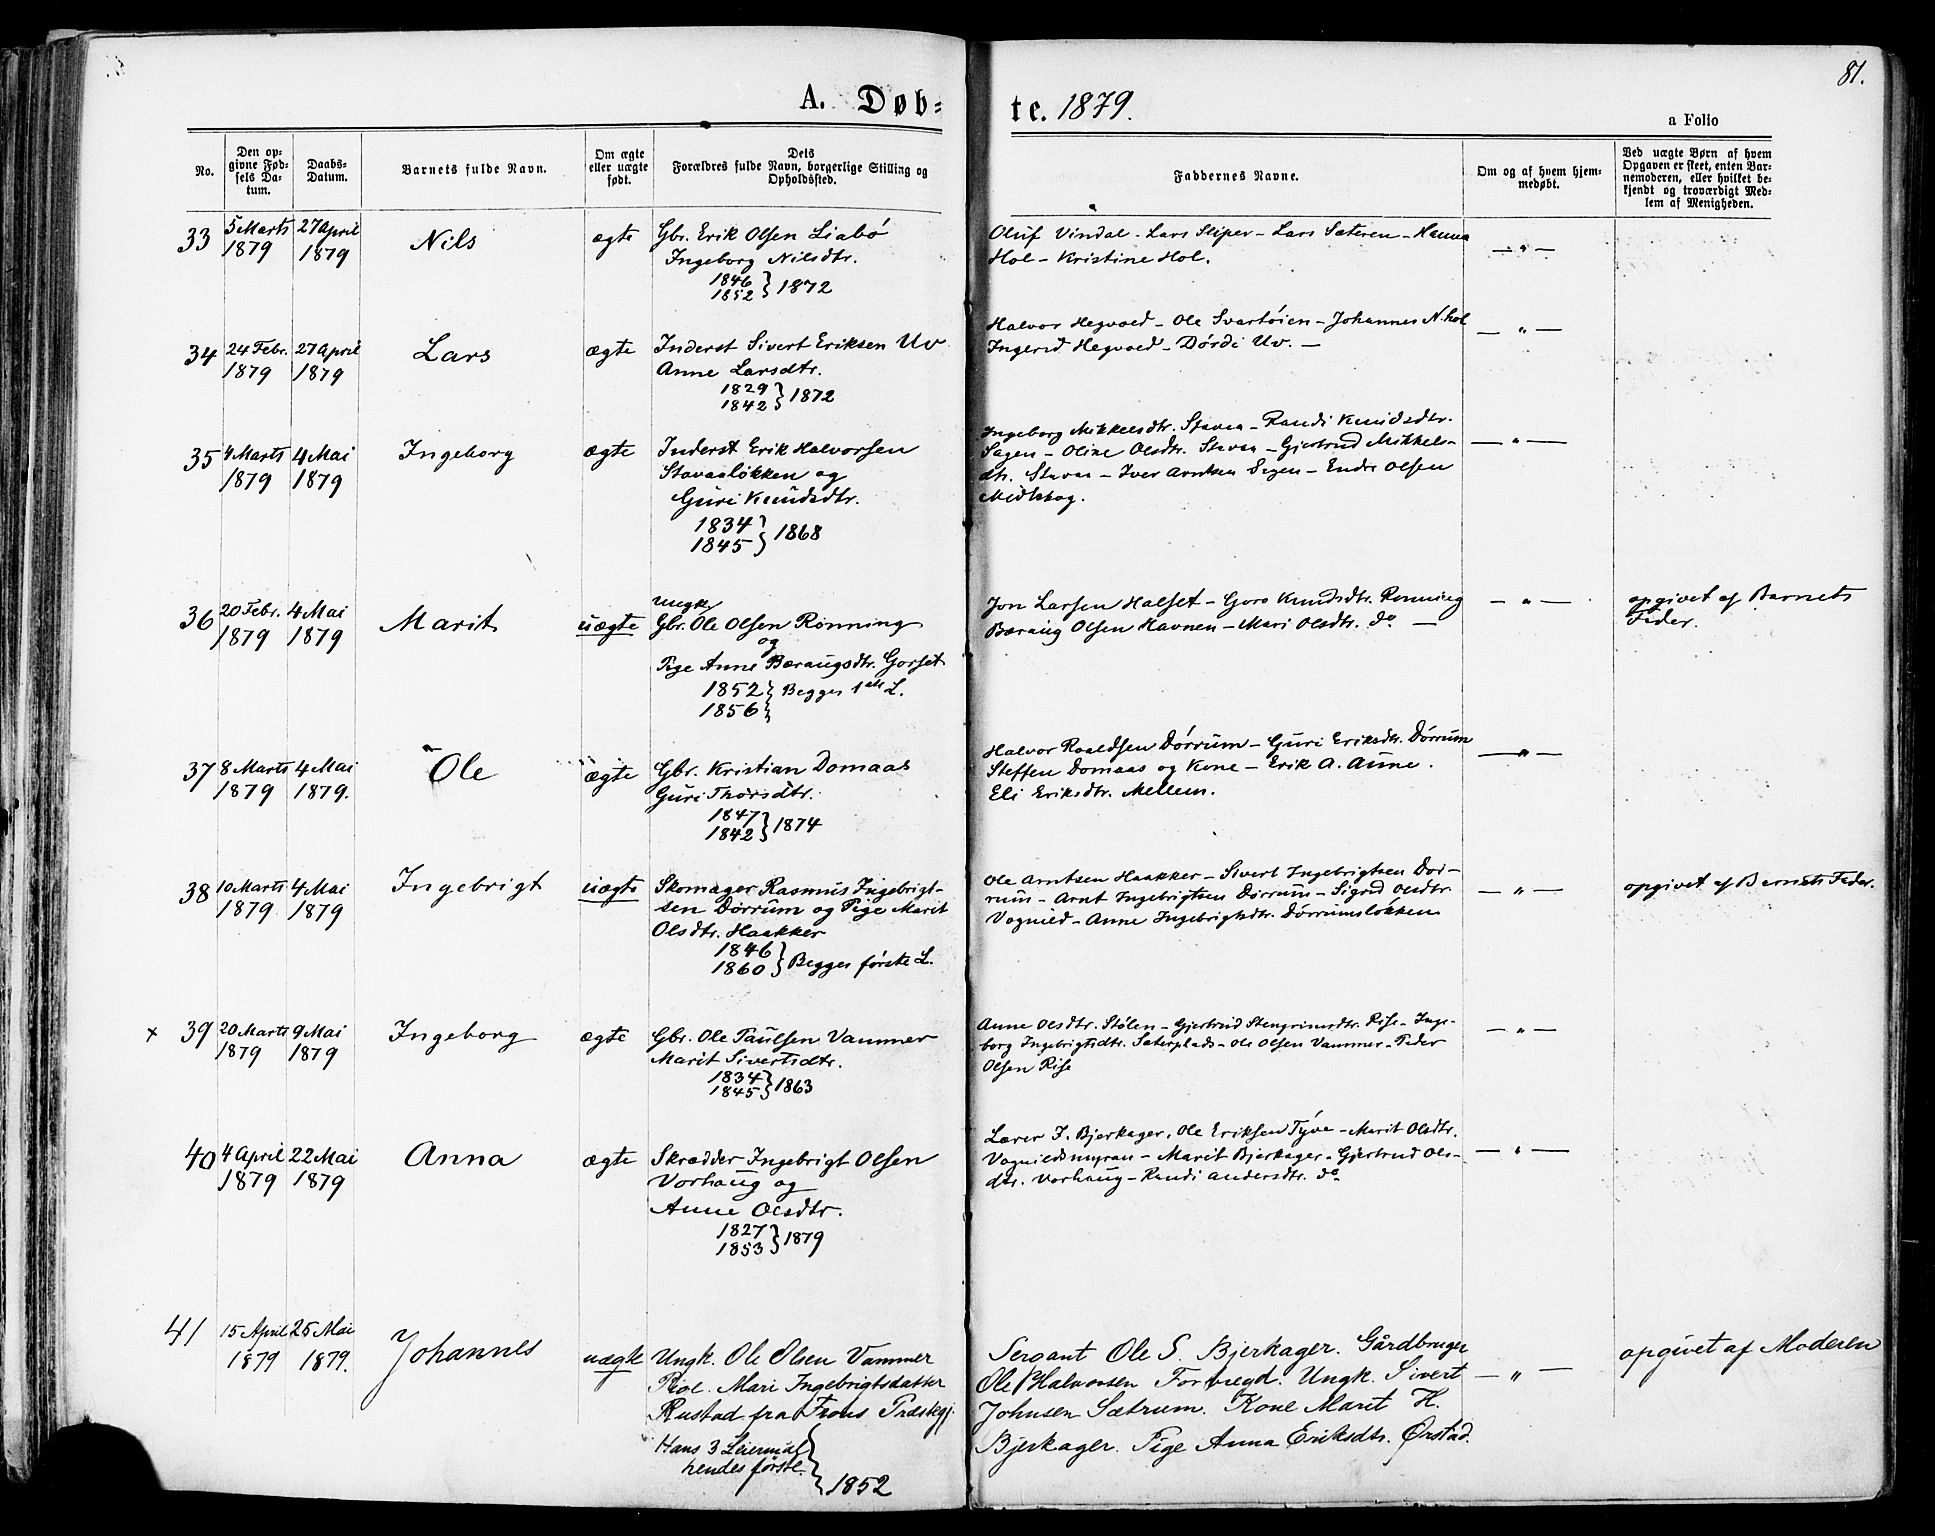 81.
A. Døb=
te. 1879.
a Folio
No.
Den op-
givne Fød-
sels Da-
tum.
Daabs-
Datum.
Barnets fulde Navn.
Om ægte
eller uægte
født.
Dets
Forældres fulde Navn, borgerlige Stilling og
Opholdssted.
Faddernes Navne.
Om og af hvem hjem-
medøbt.
Ved uægte Børn af hvem
Opgaven er skeet, enten Bar-
nemoderen, eller hvilket be-
kjendt og troværdigt Med-
lem af Menigheden.
33 5 Marts 27 April Nils ægte Gbr. Erik Olsen Liabö
1879 1879 Ingeborg Nilsdtr.
1846 } 1872
1852
Oluf Vindal - Lars Sliper - Lars Sæteren - Hanna — " —
Hol - Kristine Hol.
34 24 Febr. 27 April Lars ægte Inderst Sivert Eriksen Uv
1879 1879 Anne Larsdtr.
1829 } 1872
1842
Halvor Hegvold - Ole Svartöien - Johannes N.hol — " —
Ingerid Hegvold - Dördi Uv. —
35 4 Marts 4 Mai Ingeborg ægte Inderst Erik Halvorsen
1879 1879 Stavaslökken og
Guri Knudsdtr.
1834 } 1868
1845
Ingeborg Mikkelsdtr. Stavaa - Randi Knudsdtr.
Segen - Oline Olsdtr. Stavaa - Gjertrud Mikkels- — " —
dtr. Stavaa - Iver Arntsen Segen - Endre Olsen
Midtskog.
36 20 Febr. 4 Mai Marit uægte Ungk.
1879 1879 Gbr. Ole Olsen Rönning
og
Pige Anne Bæraugsdtr. Gorset
1852 } Begges 1ste L.
1856
Jon Larsen Halset - Goro Knudsdtr. Rönning — " — opgivet af Barnets
Bæraug Olsen Havnen - Mari Olsdtr. do — Fader.
37 8 Marts 4 Mai Ole ægte Gbr. Kristian Domaas
1879 1879. Guri Thorsdtr.
1847 } 1874
1842
Halvor Roaldsen Dörrum - Guri Eriksdtr. Dörrum — " —
Steffen Domaas og Kone - Erik A. Aune.
Eli Eriksdtr. Mellem.
38 10 Marts 4 Mai Ingebrigt uægte Skomager Rasmus Ingebrigt-
1879 1879 sen Dörrum og Pige Marit
Olsdtr. Haakker
1846 } Begges förste L.
1860
Ole Arntsen Haakker - Sivert Ingebrigtsen Dör-
rum - Arnt Ingebrigtsen Dörrum - Sigrid Olsdtr. — " — opgivet af Barnets Fader.
Vognild - Anne Ingebrigtsdtr. Dörrumslökken
x 39 20 Marts 9 Mai Ingeborg ægte Gbr. Ole Paulsen Vammer
1879 1879 Marit Sivertsdtr.
1834 } 1863
1845
Anne Olsdtr. Stölen - Gjertrud Stengrimsdtr. Rise - Inge- — " —
borg Ingebrigtsdtr. Sæterplads - Ole Olsen Vammer - Peder
Olsen Rise
40 4 April 22 Mai Anna ægte Skrædder Ingebrigt Olsen
1879 1879 Vorhaug og
Anne Olsdtr.
1827 } 1879
1853
Lærer J. Bjerkager, Ole Eriksen Tyve - Marit Olsdtr.
Vognildsmyran - Marit Bjerkager - Gjertrud Ols- — " —
dtr. Vorhaug - Randi Andersdtr. do
41 15 April 25 Mai Johannes uægte Ungk. Ole Olsen Vammer
1879 1879. Mari Ingebrigtsdatter
Rustad fra Frons Præstegj.
Hans 3 Leiermaal
hendes første. } 1852
Sergant Ole S. Bjerkager. Gårdbruger
Ole Halvorsen Ungk. Sivert — " — opgivet af Moderen
Johnsen Sætrum. Kone Marit H.
Bjerkager. Pige Anna Eriksdtr. Ørstad.